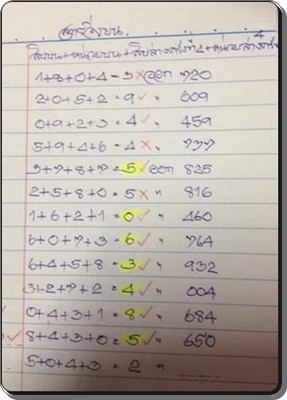 สูตรวิ่งบน
สิบบน+หน่วยบน+สิบล่าง
1+8+0+4=3 × ออก 720
2+0+5+2=9 ✓ " 609
0+9+2+3=4 ✓ " 459
5+9+4+6=4 × " 737
3+7+8+7=5 ✓ ออก 825
2+5+8+0=5 × " 816
1+6+2+1=0 ✓ " 460
6+0+7+3=6 ✓ " 764
6+4+5+8=3 ✓ " 932
3+2+7+2=4 ✓ " 004
0+4+3+1=8 ✓ " 684
8+4+3+0=5 ✓ " 650
5+0+4+3=2 "